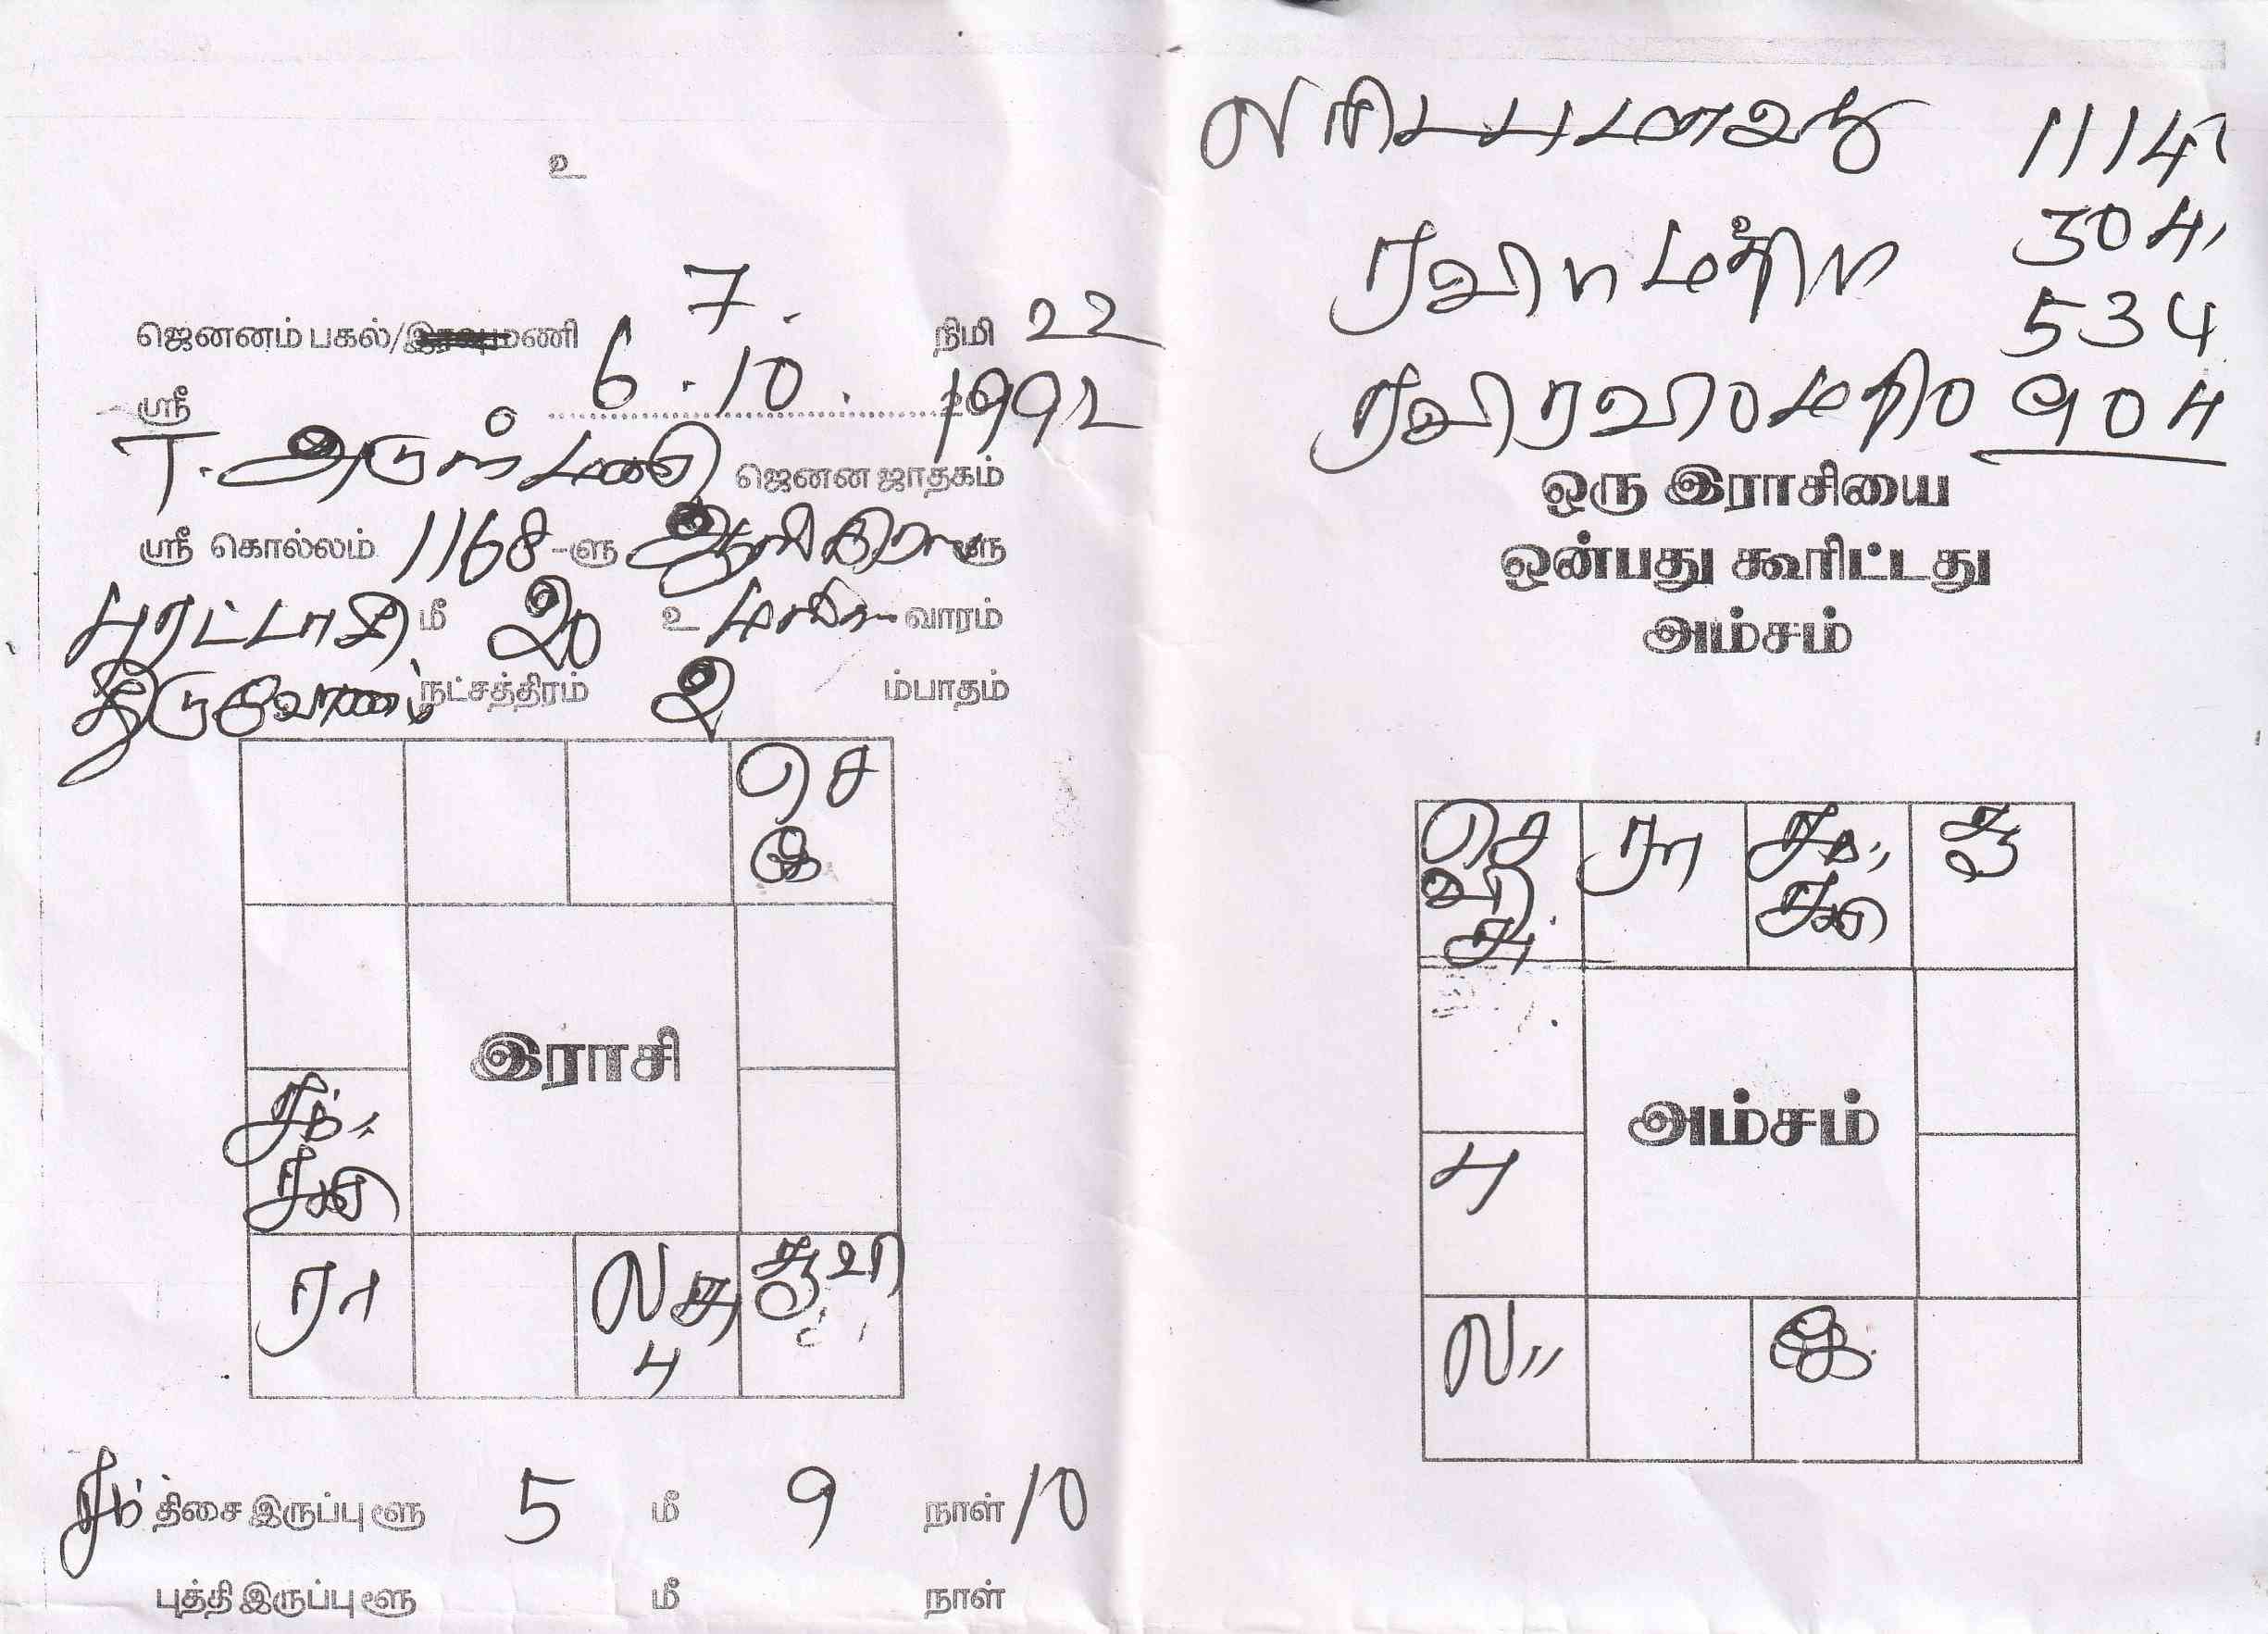 உ
ஜெனனம் பகல்/ மணி 7. நிமி 22
ஸ்ரீ 6.10.1992
T. அருள்மணி ஜெனன ஜாதகம்
ஸ்ரீ கொல்லம் 1168-ளு
புரட்டாசி மீ 20 உ வாரம்
திருவோணம் நட்சத்திரம் 2 ம்பாதம்
செ
கே
இராசி
சந்"
சனி
ரா
ல சு
பு
சூ வி
சந் திசை இருப்பு ளூ 5 மீ 9 நாள் 10
புத்தி இருப்பு ளூ மீ நாள்
304
534
904
ஒரு இராசியை
ஒன்பது கூரிட்டது
அம்சம்
செ
வி
சு
ரா
சந்"
சனி
சூ
அம்சம்
பு
ல"
கே